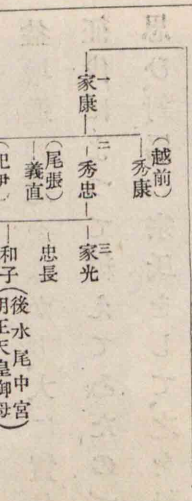 一
家康
(越前)
秀康
二
秀忠
(尾張)
義直
三
家光
忠長
和子(後水尾中宮
明正天皇御母)